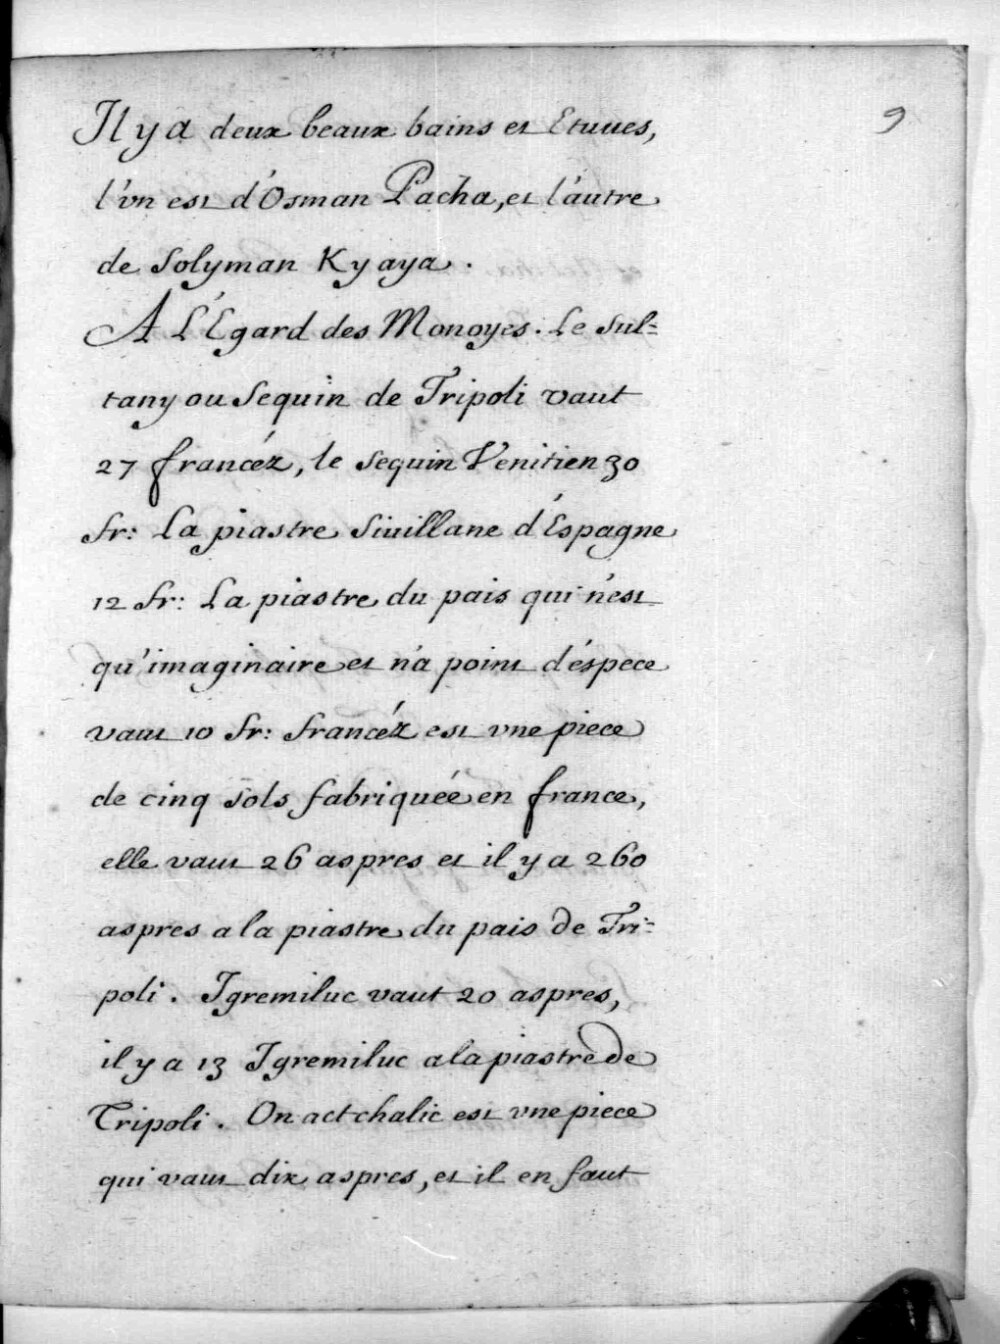 9
Il y a deux beaux bains et Etuues,
l'vn est d'Osman Pacha, et l'autre
de Solyman Kyaya.
A L'Egard des Monoyes. Le Sul=
tany ou Sequin de Tripoli vaut
27 francéz, le sequin Venitien 30
fr: La piastre Siuillane d'Espagne
12 fr: La piastre du pais qui n'est
qu'imaginaire et n'a point d'éspece
vaut 10 fr: francéz est vne piece
de cinq sols fabriquée en france,
elle vaut 26 aspres et il y a 260
aspres a la piastre du pais de Tri=
poli. Igremiluc vaut 20 aspres,
il y a 13 Igremiluc a la piastre de
Tripoli. On actchalic est vne piece
qui vaut dix aspres, et il en faut